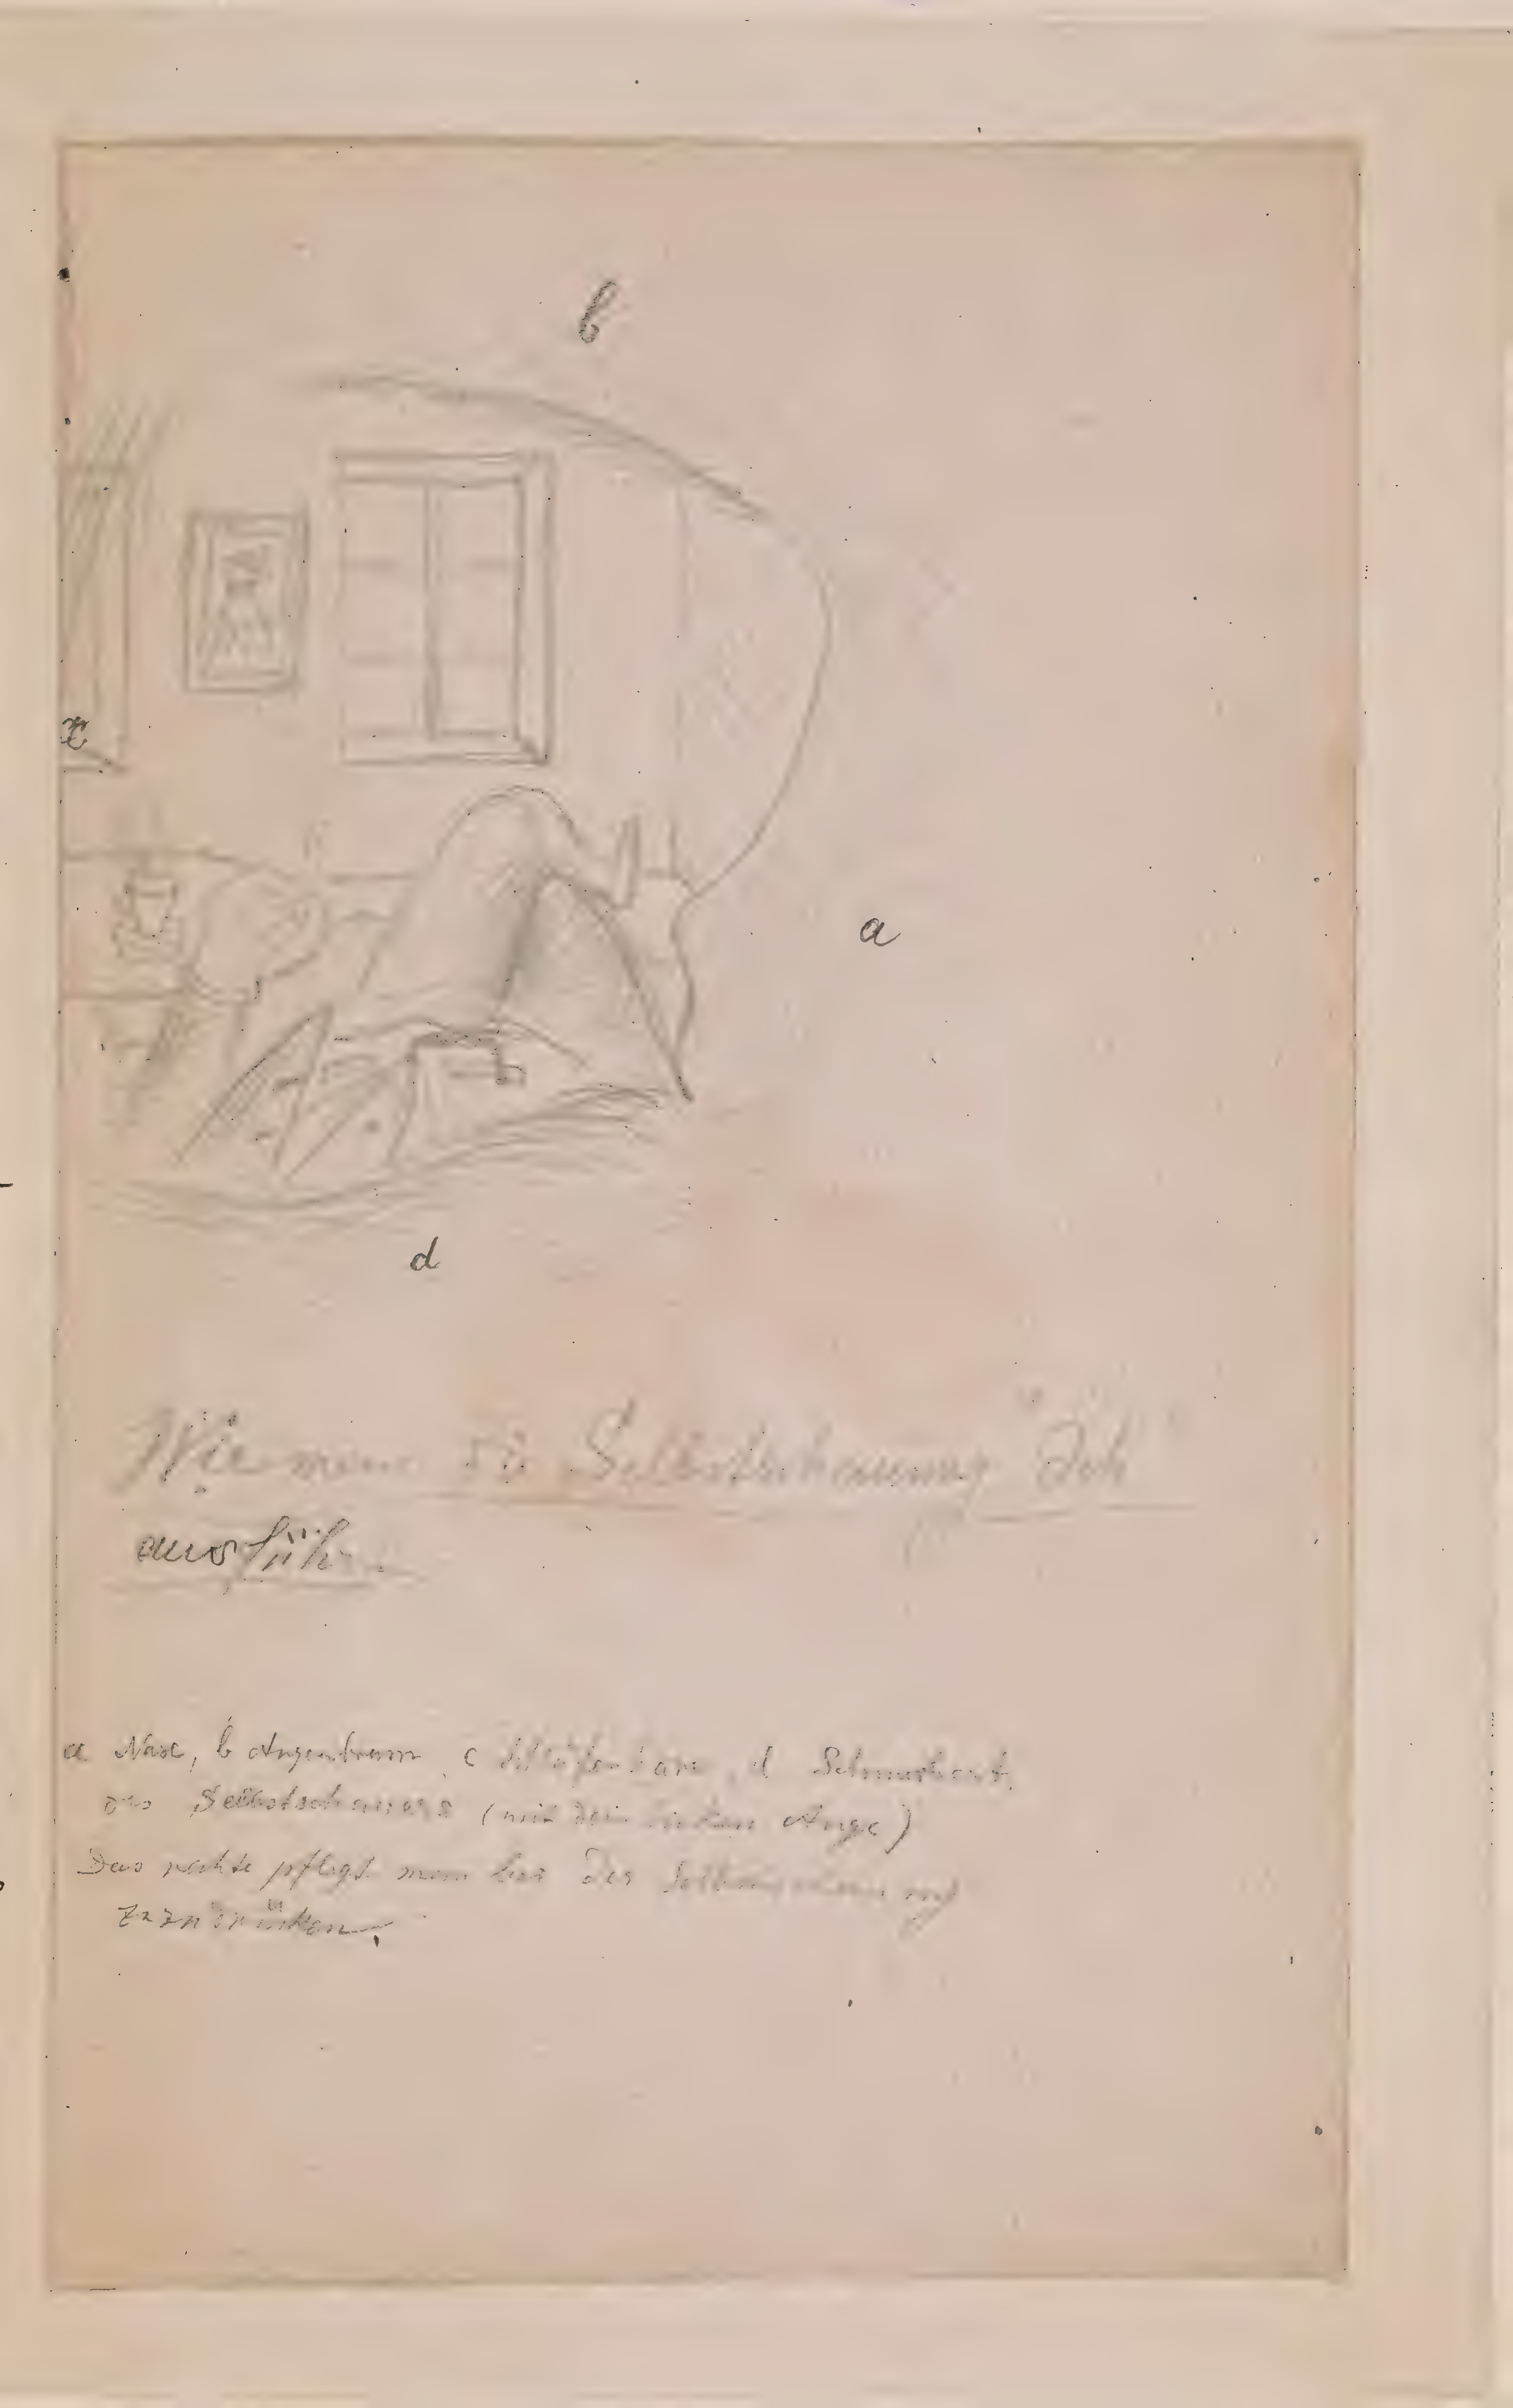 b
x
a
d
Wie man die Selbstschauung "Ich"
ausführt.
a Nase, b Augenbraun, c d Schnurbart,
des Selbstschauers (mit dem linken Auge)
Das rechte pflegt man bei der
zuzudrücken.